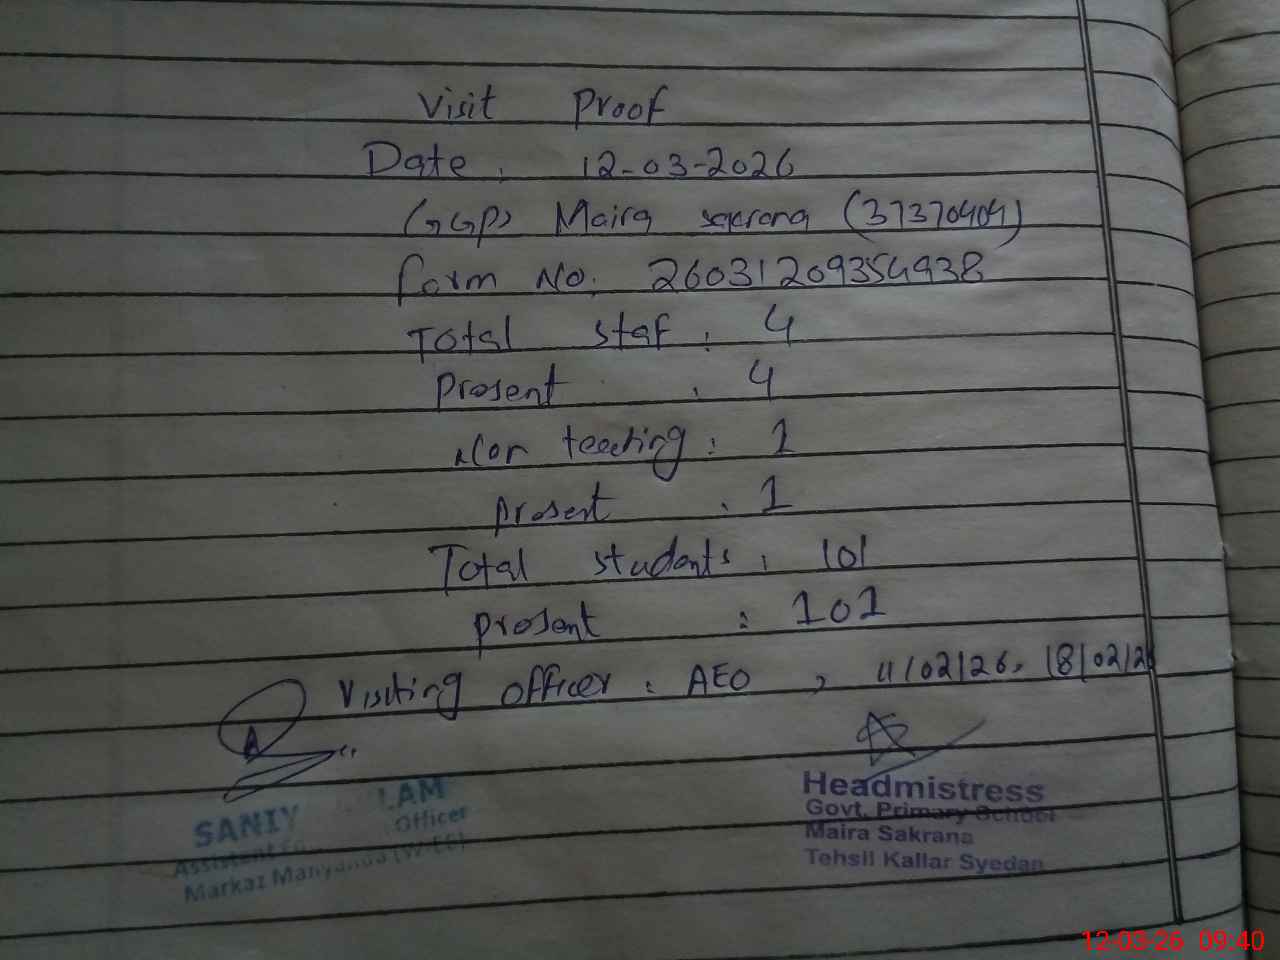 Visit Proof
Date : 12-03-2026
GGPS Maira sakrana (37370404)
form No. 26031209354938
Total staf : 4
Present : 4
Non teaching : 1
Present : 1
Total students : 101
Present : 101
Visiting officer : AEO , 11/02/26, 18/02/26
SANIY LAM
Assistant Officer
Markaz Manyanda (W-EE)
Headmistress
Govt. Primary School
Maira Sakrana
Tehsil Kallar Syedan
12-03-26 09:40